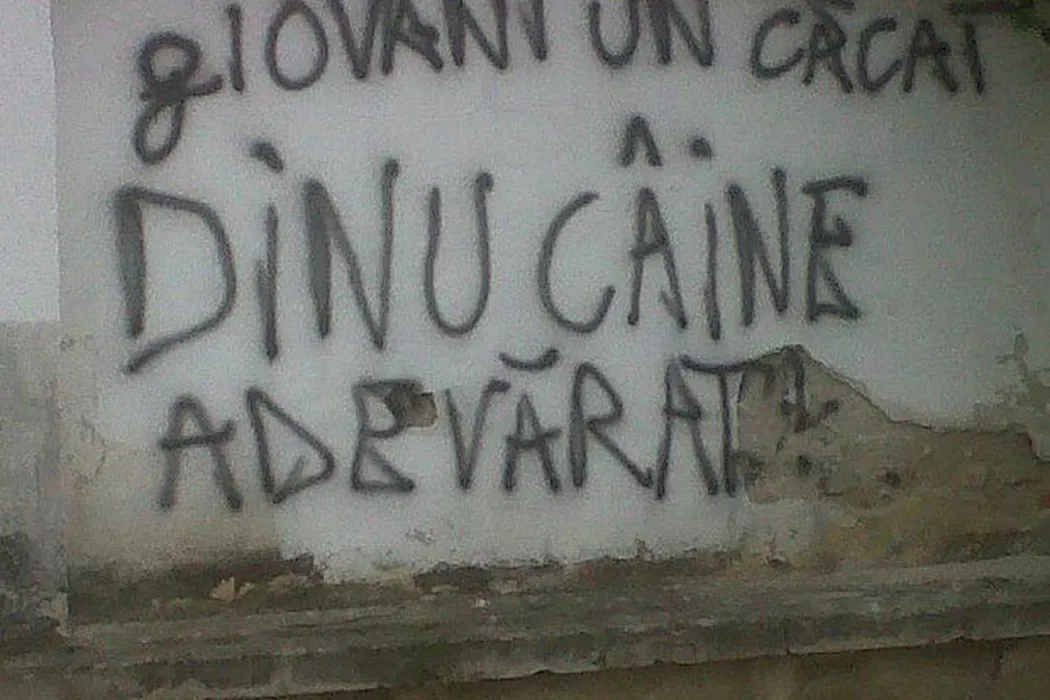 gIOVANI UN CĂCAT
DINU CÂINE
ADEVĂRAT!